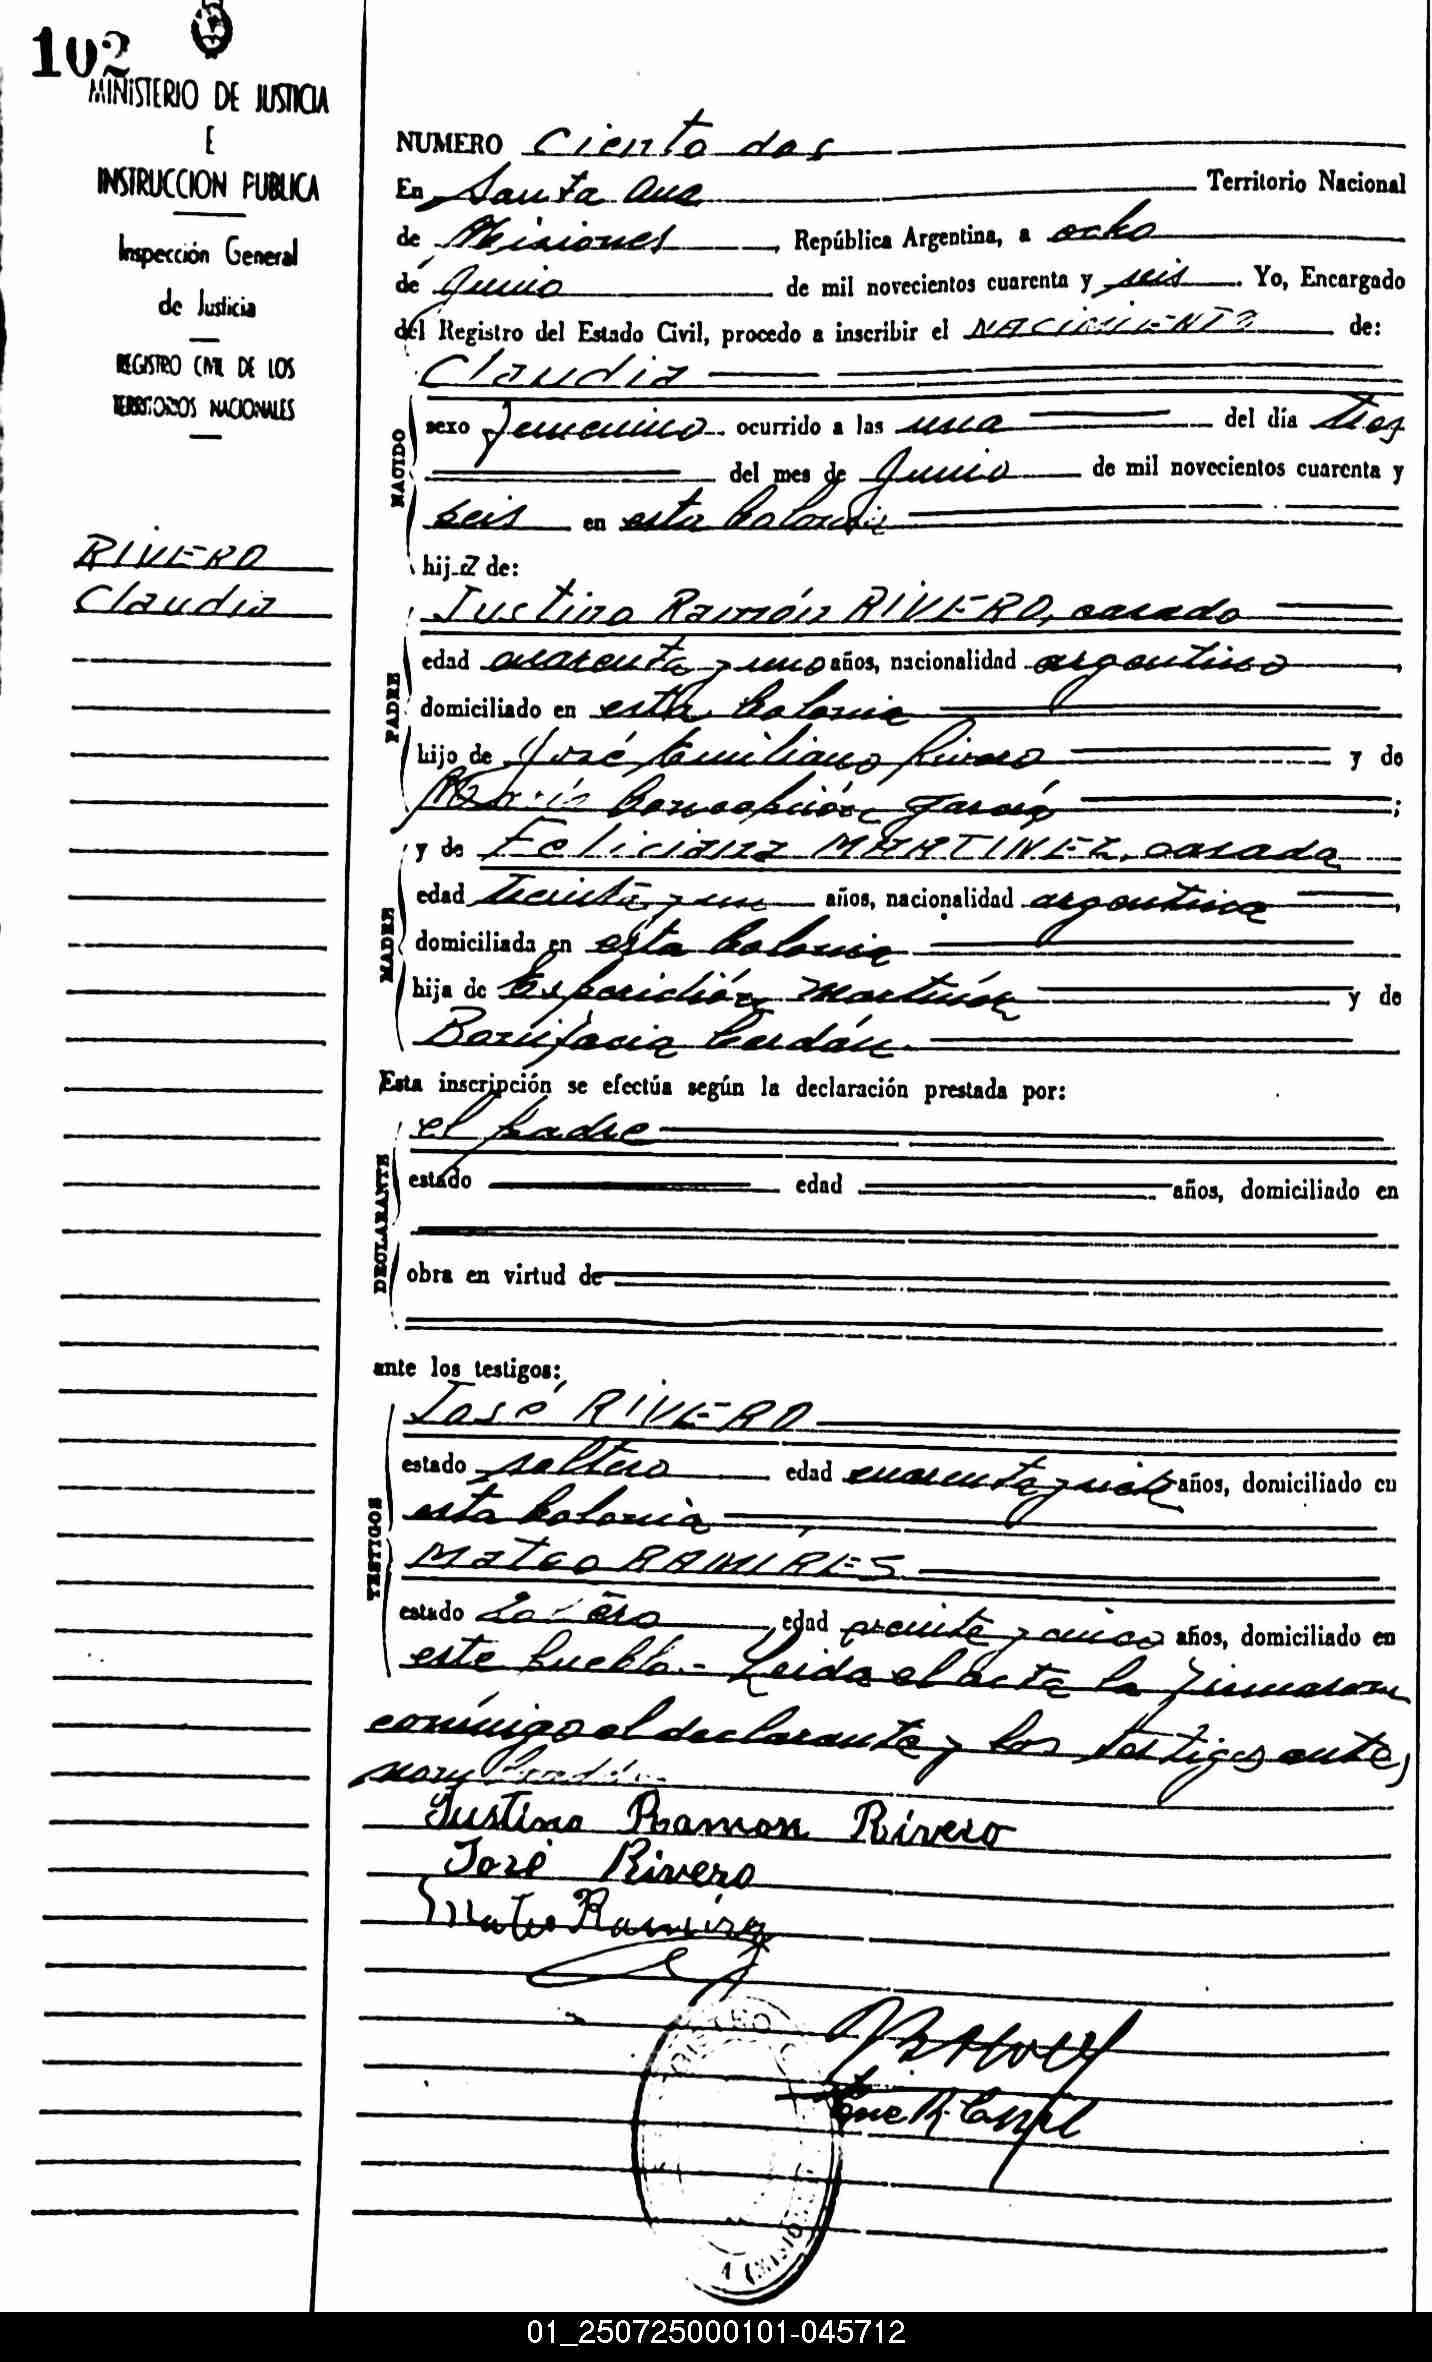 102
MINISTERIO DE JUSTICIA
E
INSTRUCCION PUBLICA
Inspección General
de Justicia
REGISTRO CIVIL DE LOS
TERRITORIOS NACIONALES
RIVERO
Claudia
NUMERO Ciento dos
En Santa Ana Territorio Nacional
de Misiones, República Argentina, a ocho
de Junio de mil novecientos cuarenta y seis. Yo, Encargado
del Registro del Estado Civil, procedo a inscribir el NACIMIENTO de:
Claudia
NACIDO
sexo femenino ocurrido a las una del día tres
del mes de Junio de mil novecientos cuarenta y
seis en esta Colonia
hija de:
Justino Ramón RIVERO, casado
PADRE
edad cuarenta y uno años, nacionalidad argentino,
domiciliado en esta Colonia
hijo de José Emiliano Rivero y de
María Concepción García;
y de Feliciana MARTINEZ, casada
MADRE
edad treinta y un años, nacionalidad argentina,
domiciliada en esta Colonia
hija de Esperidión Martínez y de
Bonifacia Cerdán.
Esta inscripción se efectúa según la declaración prestada por:
el padre
DECLARANTE
estado edad años, domiciliado en
obra en virtud de
ante los testigos:
José RIVERO
TESTIGOS
estado soltero edad cuarenta y años, domiciliado en
esta Colonia
Mateo RAMIRES
estado edad y cinco años, domiciliado en
este pueblo.- Leida el acta la firmaron
conmigo el declarante y los testigos ante,
Justino Ramon Rivero
José Rivero
Mateo Ramirez
01_250725000101-045712